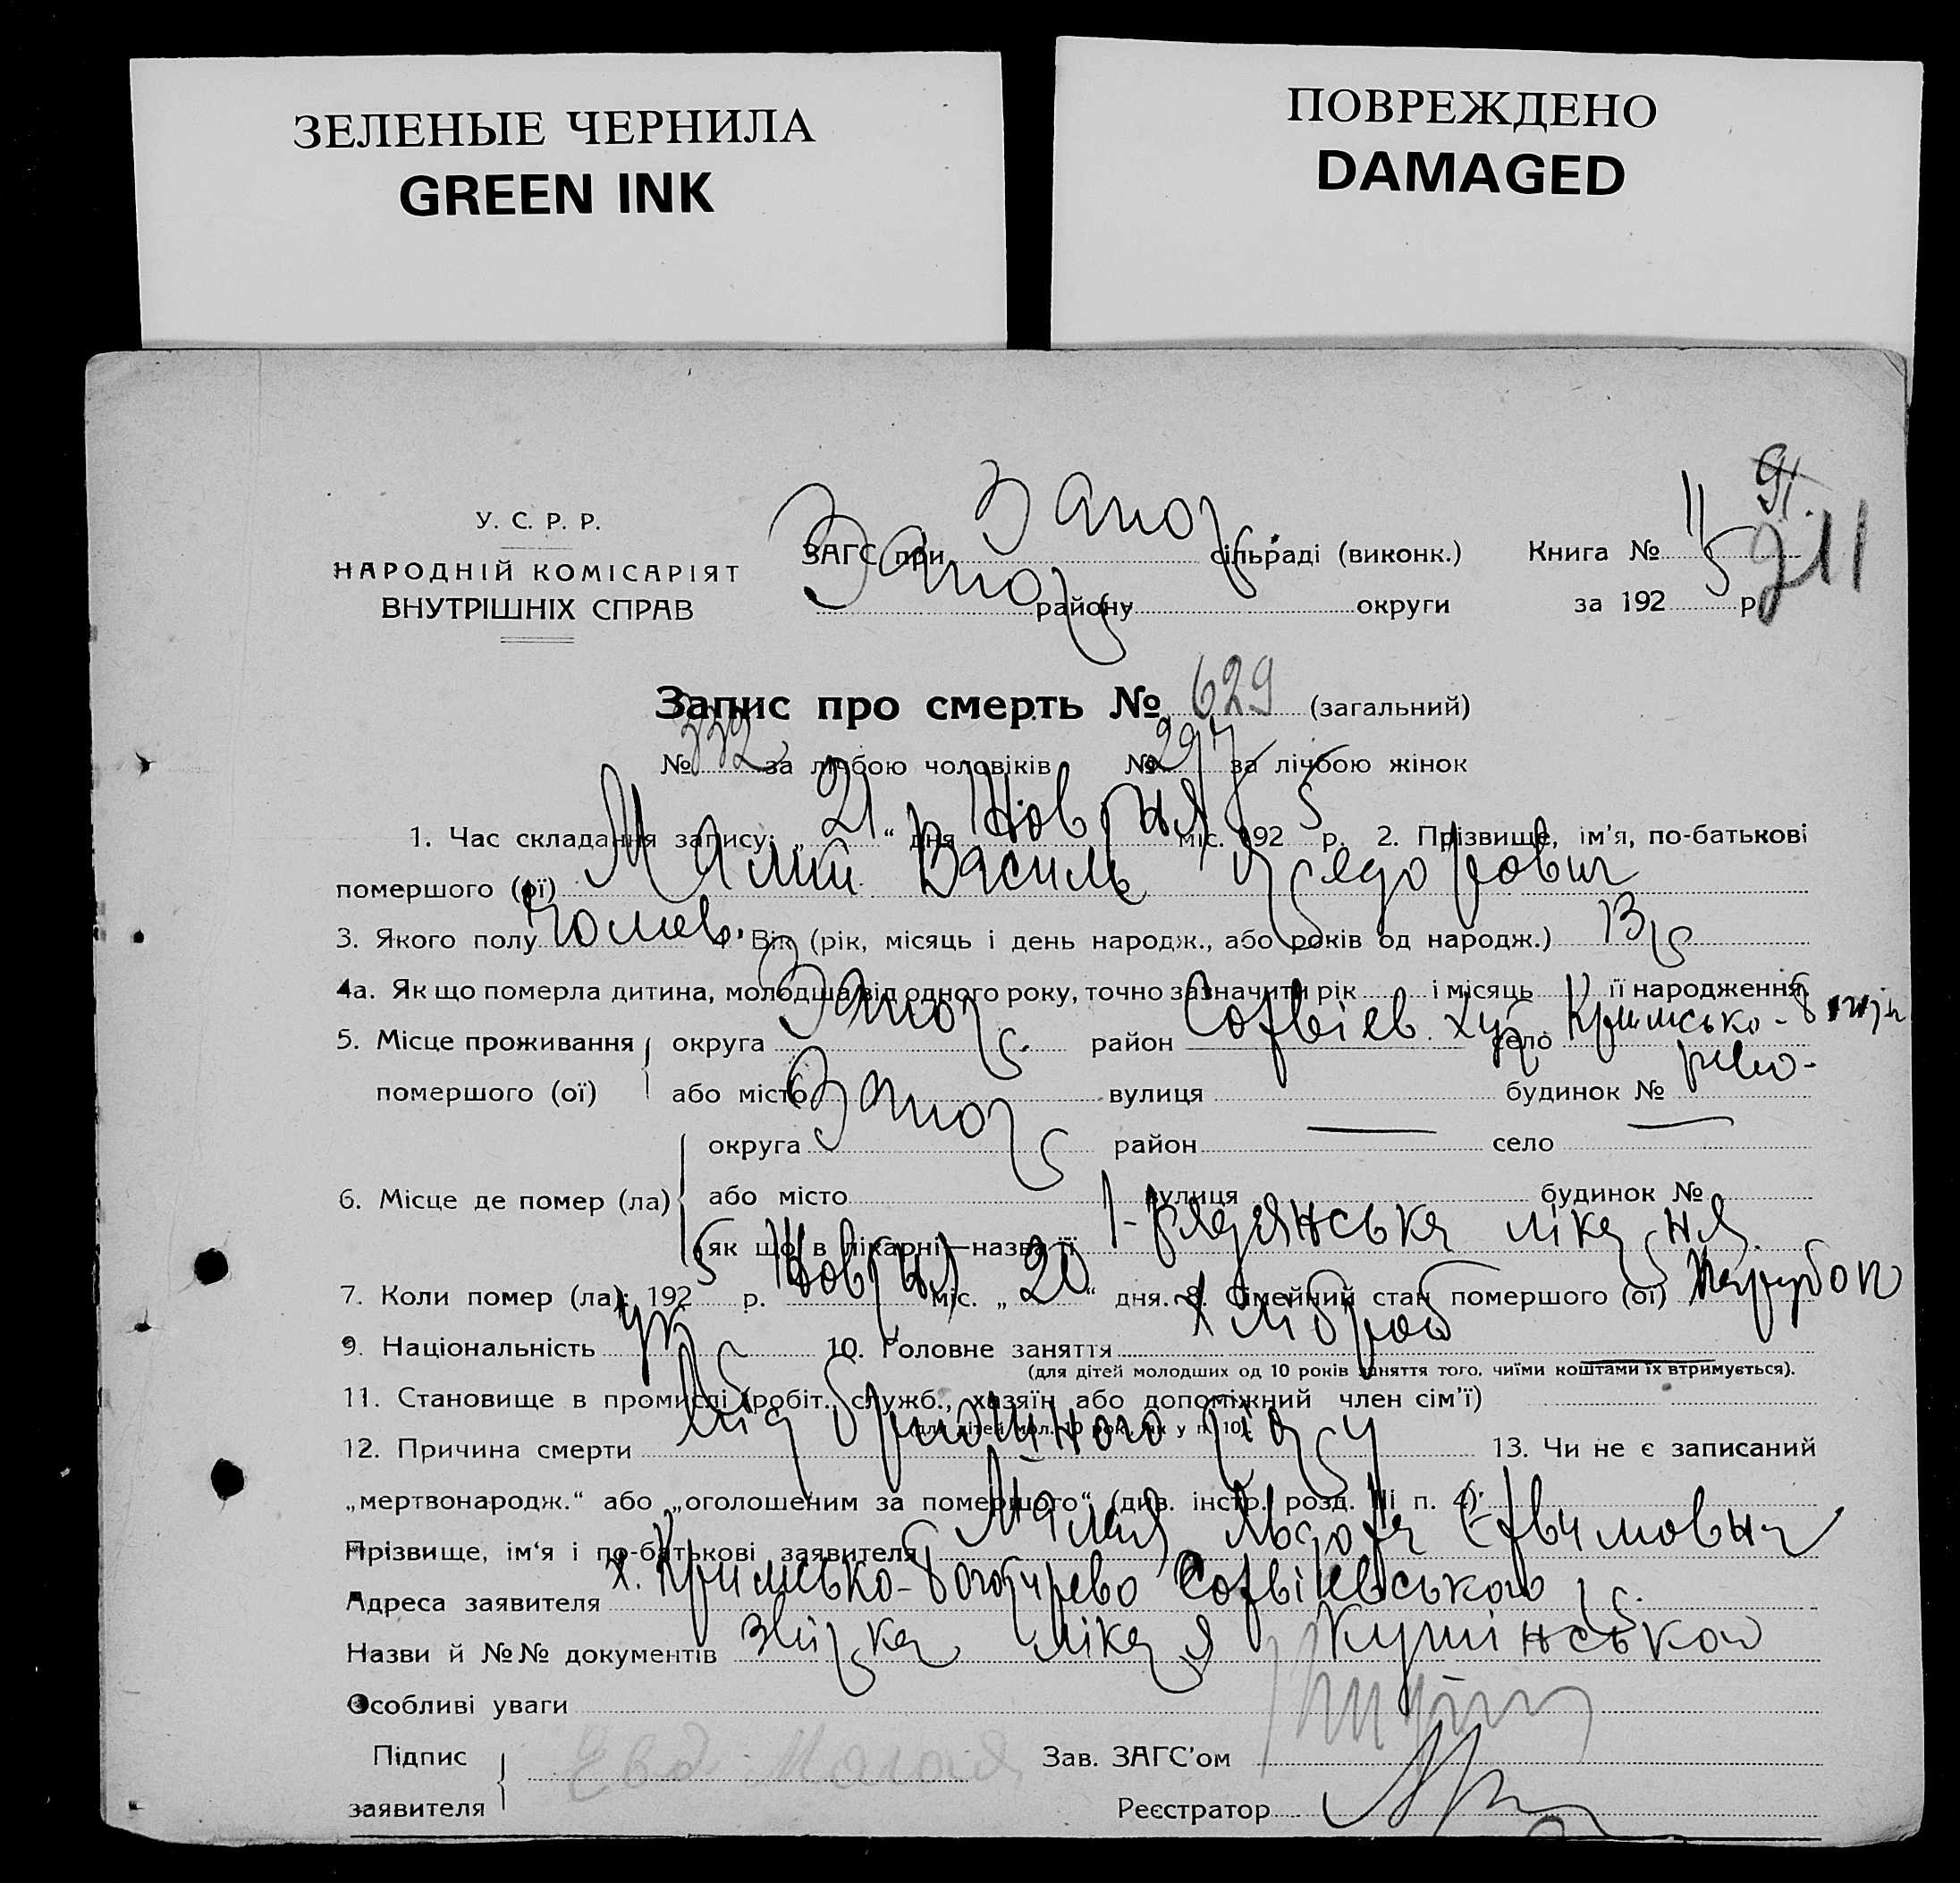 ЗЕЛЕНЫЕ ЧЕРНИЛА
GREEN INK
ПОВРЕЖДЕНО
DAMAGED
91.
211
У. С. Р. Р.
НАРОДНІЙ КОМІСАРІЯТ
ВНУТРІШНІХ СПРАВ
ЗАГС при Запоріз. сільраді (виконк.) Книга № 11
Запоріз району округи за 192 5 р.
Запис про смерть № 629 (загальний)
№ 332 за лічбою чоловіків № 297 за лічбою жінок
1. Час складання запису: „ 21 “ дня Жовтня міс. 192 5 р. 2. Прізвище, ім’я, по-батькові
помершого (ої) Малий Василь Федорович
3. Якого полу чолов. 4. Вік (рік, місяць і день народж., або років од народж.) 13 р
4а. Як що померла дитина, молодша від одного року, точно зазначити рік і місяць її народження
5. Місце проживання округа Запоріз. район Софвіев. хут. село Кримсько-
помершого (ої) або місто вулиця будинок №
округа Запоріз район — село —
6. Місце де помер (ла) або місто вулиця будинок №
як що в лікарні—назва її 1-Радянська лікарня.
7. Коли помер (ла): 192 5 р. Жовтня міс. „ 20 “ дня. 8. Сімейний стан помершого (ої) парубок
9. Національність укр 10. Головне заняття хлібороб
(для дітей молодших од 10 років заняття того, чиїми коштами їх втримується).
11. Становище в промислі (робіт., служб., хазяїн або допоміжний член сім’ї)
(для дітей мол. 10 рок., як у п. 10).
12. Причина смерти Від брюшного тіфу 13. Чи не є записаний
„мертвонародж.“ або „оголошеним за помершого“ (див. інстр. розд. III п. 4)
Прізвище, ім‘я і по-батькові заявителя Малая Явдоха Єфвимовна
Адреса заявителя х. Кримсько- Софвіевського р.
Назви й №№ документів
Особливі уваги
Підпис
заявителя Евд Малая
Зав. ЗАГС’ом
Реєстратор